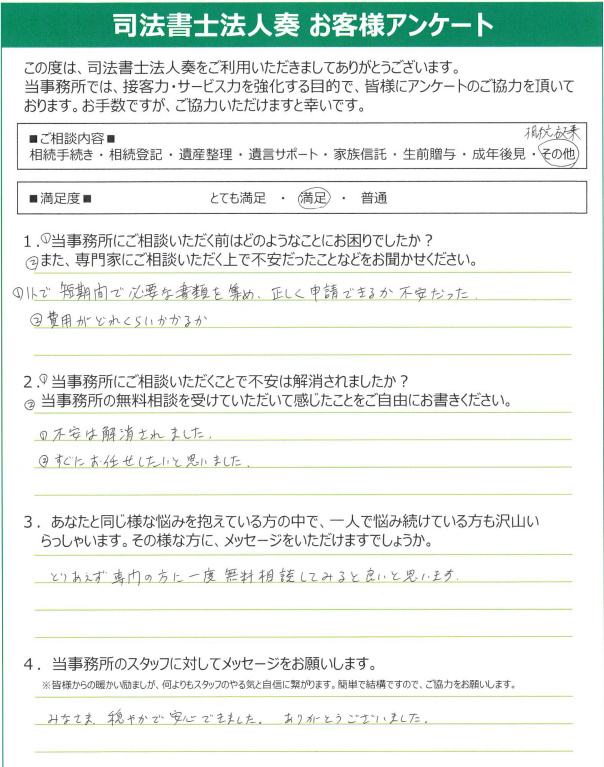 司法書士法人奏 お客様アンケート
この度は、司法書士法人奏をご利用いただきましてありがとうございます。
当事務所では、接客力・サービス力を強化する目的で、皆様にアンケートのご協力を頂いて
おります。お手数ですが、ご協力いただけますと幸いです。
■ご相談内容■
相続放棄
相続手続き・相続登記・遺産整理・遺言サポート・家族信託・生前贈与・成年後見・その他
■満足度■ とても満足 ・ 満足 ・ 普通
1.①当事務所にご相談いただく前はどのようなことにお困りでしたか?
②また、専門家にご相談いただく上で不安だったことなどをお聞かせください。
①1人で短期間で必要な書類を集め、正しく申請できるか不安だった。
②費用がどれくらいかかるか
2.①当事務所にご相談いただくことで不安は解消されましたか?
②当事務所の無料相談を受けていただいて感じたことをご自由にお書きください。
①不安は解消されました。
②すぐにお任せしたいと思いました。
3.あなたと同じ様な悩みを抱えている方の中で、一人で悩み続けている方も沢山い
らっしゃいます。その様な方に、メッセージをいただけますでしょうか。
とりあえず専門の方に一度無料相談してみると良いと思います。
4.当事務所のスタッフに対してメッセージをお願いします。
※皆様からの暖かい励ましが、何よりもスタッフのやる気と自信に繋がります。簡単で結構ですので、ご協力をお願いします。
みなさま、穏やかで安心できました。ありがとうございました。